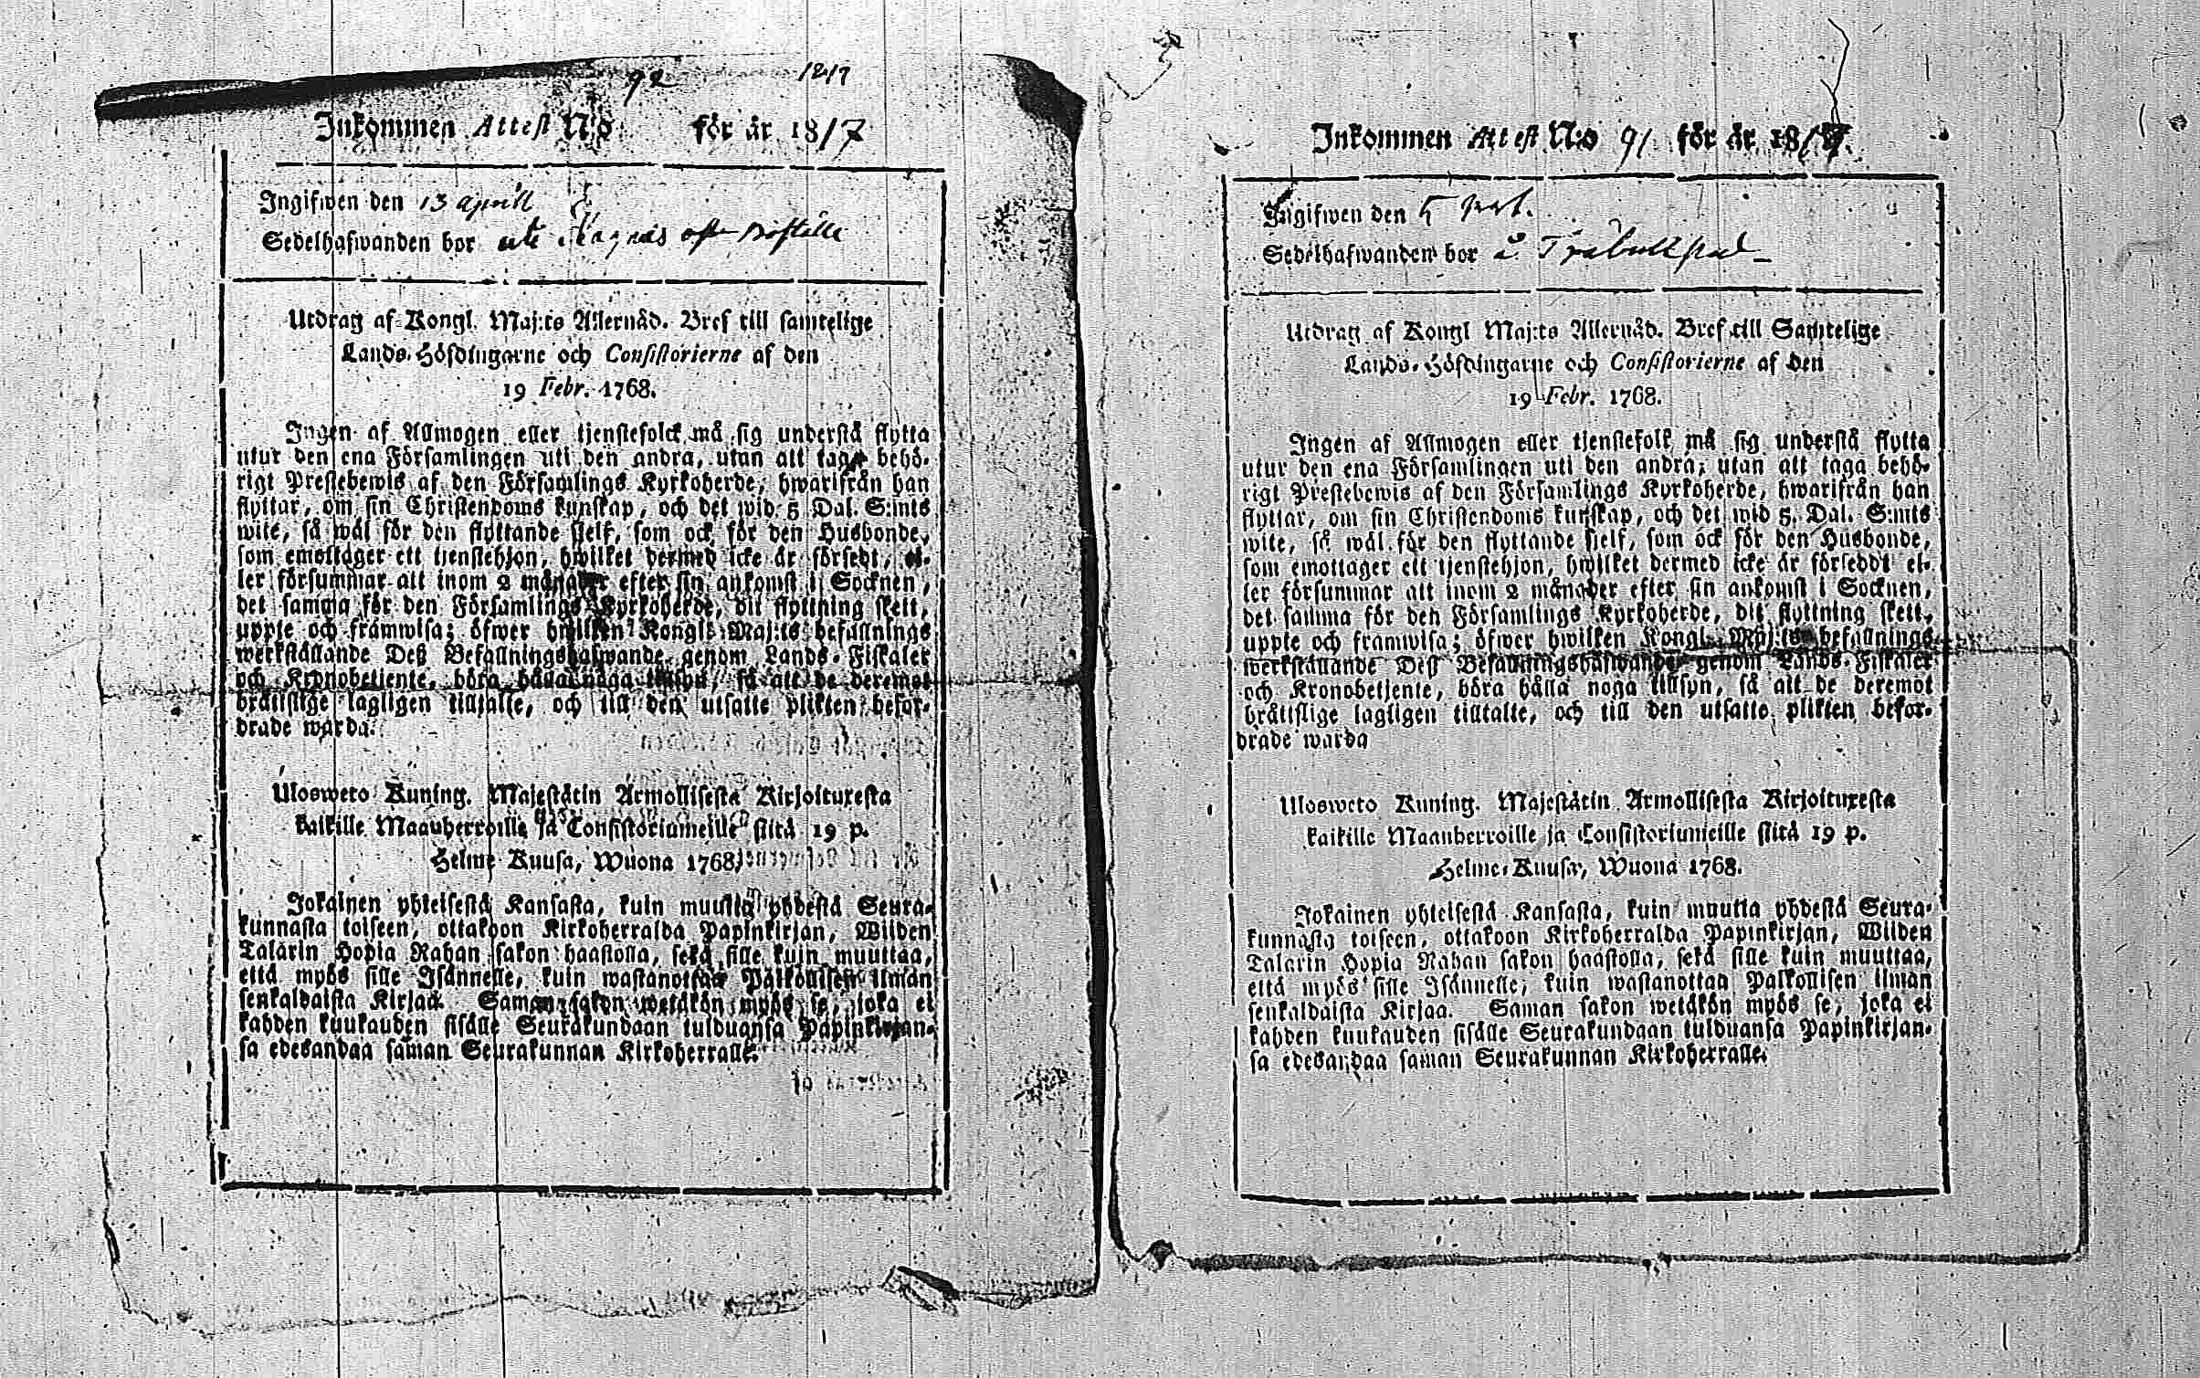 92 1217
Inkommen Attest N:o för år 1817
Ingifwen den 13 aprill
Sedelhafwanden bor
Utdrag af Kongl. Maj:ts Allernåd. Bref till samtelige
Lands-Höfdingarne och Consistorierne af den
19 Febr. 1768.
Ingen af Allmogen eller tjenstefolck må sig understå flytta
utur den ena Församlingen uti den andra, utan att taga behö-
rigt Prestebewis af den Församlings Kyrkoherde, hwarifrån han
flyttar, om sin Christendoms kunskap, och det wid 5 Dal. S:mts
wite, så wäl för den flyttande sjelf, som ock för den Husbonde,
som emottager ett tjenstehjon, hwilket dermed icke är försedt, el-
ler försummar att inom 2 månader efter sin ankomst i Socknen,
det samma för den Församlings Kyrkoherde, dit flyttning skett,
uppte och framwisa; öfwer hwilken Kongl. Maj:ts befallnings
werkställande Deß Befallningshafwande genom Lands-Fiskaler
och Kronobetjente, böra hålla noga tillsyn, så att de deremot
bråttslige lagligen tilltalte, och till den utsatte plikten befor-
drade warda.
Ulosweto Kuning. Majestätin Armollisesta Kirjoituxesta
kaikille Maanherroille ja Consistoriumeille siitä 19 p.
Helme Kuusa, Wuona 1768.
Jokainen yhteisestä Kansasta, kuin muutta yhdestä Seura-
kunnasta toiseen, ottakoon Kirkoherralda Papinkirjan, Wiiden
Talarin Hopia Rahan sakon haastolla, sekä sille kuin muuttaa,
että myös sille Isännelle, kuin wastanottaa Palkollisen ilman
senkaldaista Kirjaa. Saman sakon wetäkön myös se, joka ei
kahden kuukauden sisälle Seurakundaan tulduansa Papinkirjan-
sa edesandaa saman Seurakunnan Kirkoherralle.
Inkommen Attest N:o 91 för år 1817.
Ingifwen den 5
Sedelhafwanden bor å
Utdrag af Kongl Maj:ts Allernåd. Bref till Samtelige
Lands-Höfdingarne och Consistorierne af den
19 Febr. 1768.
Ingen af Allmogen eller tjenstefolk må sig understå flytta
utur den ena Församlingen uti den andra, utan att taga behö-
rigt Prestebewis af den Församlings Kyrkoherde, hwarifrån han
flyttar, om sin Christendoms kunskap, och det wid 5. Dal. S:mts
wite, så wäl för den flyttande sjelf, som ock för den Husbonde,
som emottager ett tjenstehjon, hwilket dermed icke är förseddt el-
ler försummar att inom 2 månader efter sin ankomst i Socknen,
det samma för den Församlings Kyrkoherde, dit flyttning skett,
uppte och framwisa; öfwer hwilken Kongl. Maj:ts befallnings
werkställande Deß Befallningshafwande genom Lands-Fiskaler
och Kronobetjente, böra hålla noga tillsyn, så att de deremot
bråttslige lagligen tilltalte, och till den utsatte plikten befor-
drade warda
Ulosweto Kuning. Majestätin Armollisesta Kirjoituxesta
kaikille Maanherroille ja Consistoriumeille siitä 19 p.
Helme-Kuusa, Wuona 1768.
Jokainen yhteisestä Kansasta, kuin muutta yhdestä Seura-
kunnasta toiseen, ottakoon Kirkoherralda Papinkirjan, Wiiden
Talarin Hopia Rahan sakon haastolla, sekä sille kuin muuttaa,
että myös sille Isännelle, kuin wastanottaa Palkollisen ilman
senkaldaista Kirjaa. Saman sakon wetäkön myös se, joka ei
kahden kuukauden sisälle Seurakundaan tulduansa Papinkirjan-
sa edesandaa saman Seurakunnan Kirkoherralle.